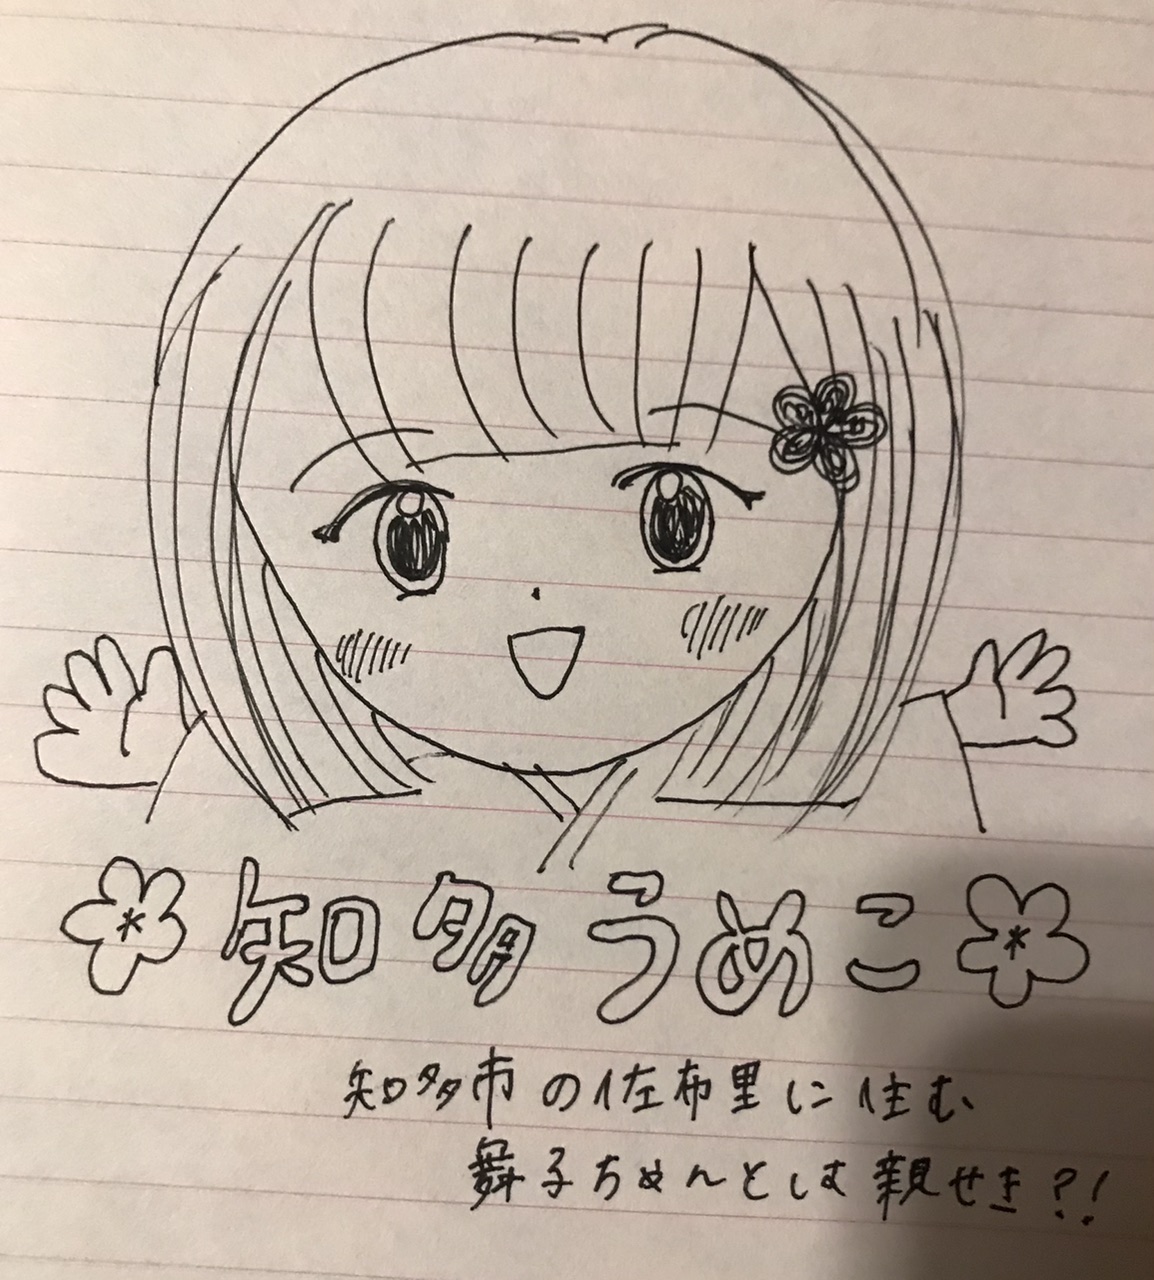 知多うめこ
知多市の佐布里に住む
舞子ちゃんとは親せき?!